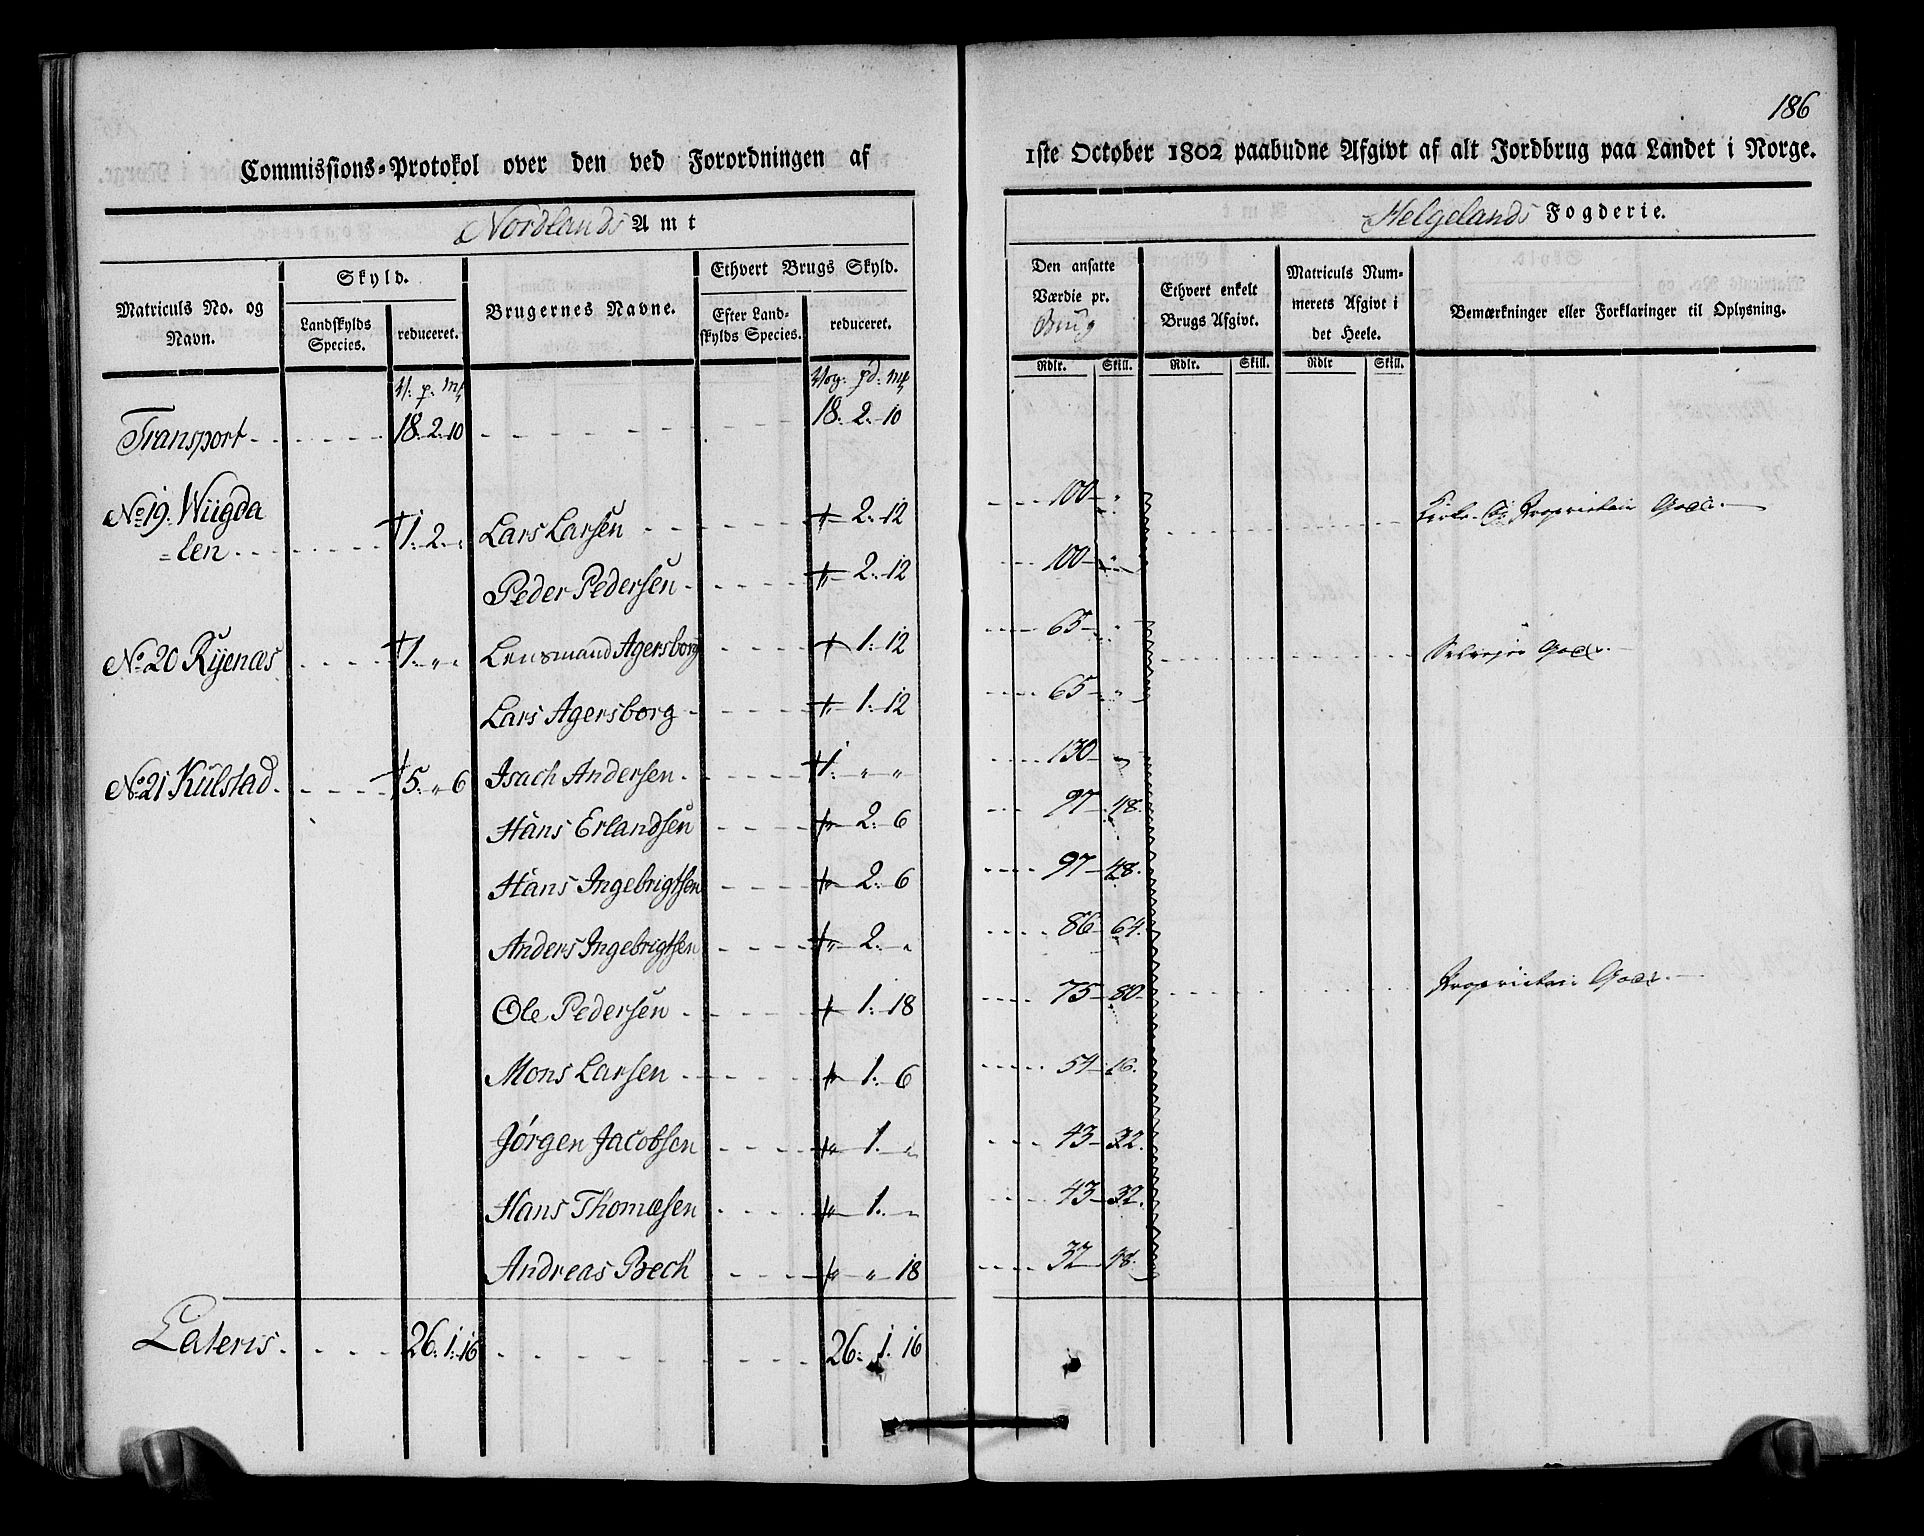 186
Commissions-Protokol over den ved Forordningen af 1ste October 1802 paabudne Afgivt af alt Jordbrug paa Landet i Norge.
Nordlands Amt
Helgelands Fogderie.
Matriculs No. og Navn.
Skyld.
Landskylds Species.
reduceret.
Brugernes Navne.
Ethvert Brugs Skyld.
Efter Landskylds Species.
reduceret.
Den ansatte Værdie pr. Brug
Ethvert enkelt Brugs Afgivt.
Matriculs Nummerets Afgivt i det Heele.
Bemærkninger eller Forklaringer til Oplysning.
Rdlr. Skill. Rdlr. Skill. Rdlr Skill.
V: p: mk Vog: pd: mk
Transport 18. 2. 10 18. 2. 10
No 19. Wiigda
=len 1. 2. " Lars Larsen " 2. 12 100 "
Peder Pedersen " 2. 12 100 "
Proprietair Gods.
No 20 Ryenæs 1. " " Lensmand Agersborg " 1. 12 65 "
Lars Agersborg " 1. 12 65 "
Selvejer Gods.
No 21 Kulstad 5. " 6 Isach Andersen 1. " " 130 "
Hans Erlandsen " 2. 6 97 48.
Hans Ingebrigtsen " 2. 6 97 48.
Anders Ingebrigtsen " 2. " 86 64.
Ole Pedersen " 1. 18 75 80 Proprietair Gods.
Mons Larsen " 1. 6 54 16.
Jørgen Jacobsen " 1. " 43 32.
Hans Thomæsen " 1. " 43 32.
Andreas Bech " " 18 32 48.
Lateris 26. 1. 16 26. 1. 16